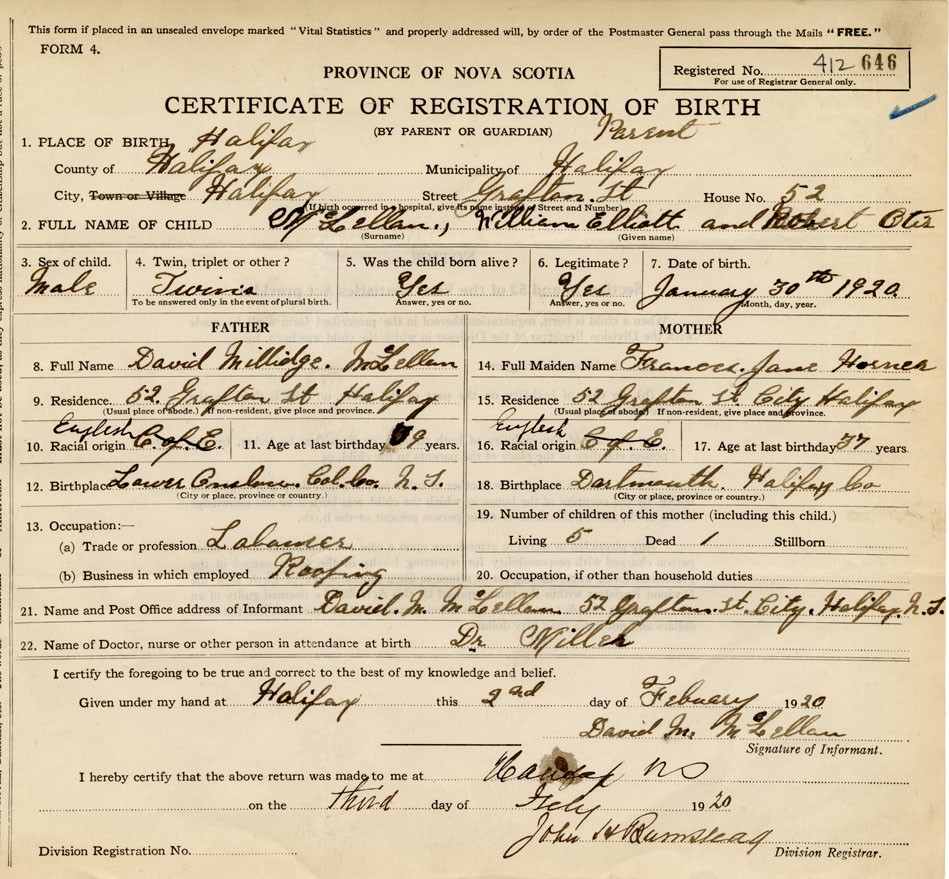 This form if placed in an unsealed envelope marked "Vital Statistics" and properly addressed will, by order of the Postmaster General pass through the Mails "FREE."
FORM 4.
Registered No. 412 646
For use of Registrar General only.
PROVINCE OF NOVA SCOTIA
CERTIFICATE OF REGISTRATION OF BIRTH
(BY PARENT OR GUARDIAN) Parent
1. PLACE OF BIRTH Halifax
County of Halifax Municipality of Halifax
City, Town or Village Halifax Street Grafton St House No. 52
(If birth occurred in a hospital, give its name instead of Street and Number)
2. FULL NAME OF CHILD McLellan., William Elliott and Robert Otis
(Surname) (Given name)
3. Sex of child. 4. Twin, triplet or other? 5. Was the child born alive? 6. Legitimate? 7. Date of birth.
Male Twins Yes Yes January 30th 1920
To be answered only in the event of plural birth. Answer, yes or no. Answer, yes or no. Month, day, year.
FATHER MOTHER
8. Full Name David Millidge. McLellan 14. Full Maiden Name Frances. Jane Horner
9. Residence. 52. Grafton St Halifax 15. Residence 52 Grafton St. City Halifax
(Usual place of abode.) If non-resident, give place and province. (Usual place of abode) If non-resident, give place and province.
English English
10. Racial origin C. of E. 11. Age at last birthday 9 years. 16. Racial origin C of E. 17. Age at last birthday 37 years
12. Birthplace Lower Onslow. Col. Co. N. S. 18. Birthplace Dartmouth. Halifax Co
(City or place, province or country.) (City or place, province or country.)
13. Occupation:— 19. Number of children of this mother (including this child.)
(a) Trade or profession Labourer Living 5 Dead 1 Stillborn
(b) Business in which employed Roofing 20. Occupation, if other than household duties
21. Name and Post Office address of Informant David. M. McLellan 52 Grafton. St. City. Halifax N. S.
22. Name of Doctor, nurse or other person in attendance at birth Dr Miller
I certify the foregoing to be true and correct to the best of my knowledge and belief.
Given under my hand at Halifax this 2nd day of Febuary 1920
David M. McLellan
Signature of Informant.
I hereby certify that the above return was made to me at Halifax NS
on the third day of Feby 1920
John H
Division Registration No. Division Registrar.